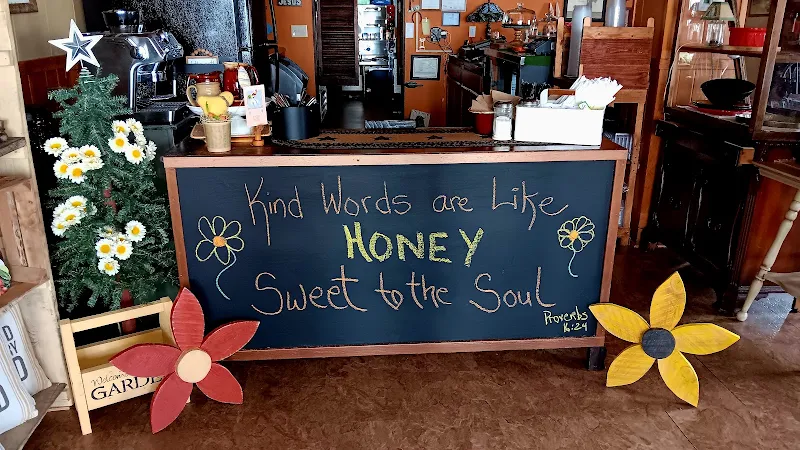 JESUS
Kind Words are Like
HONEY
Sweet to the Soul
Proverbs
16:24
Welcome
GARDE